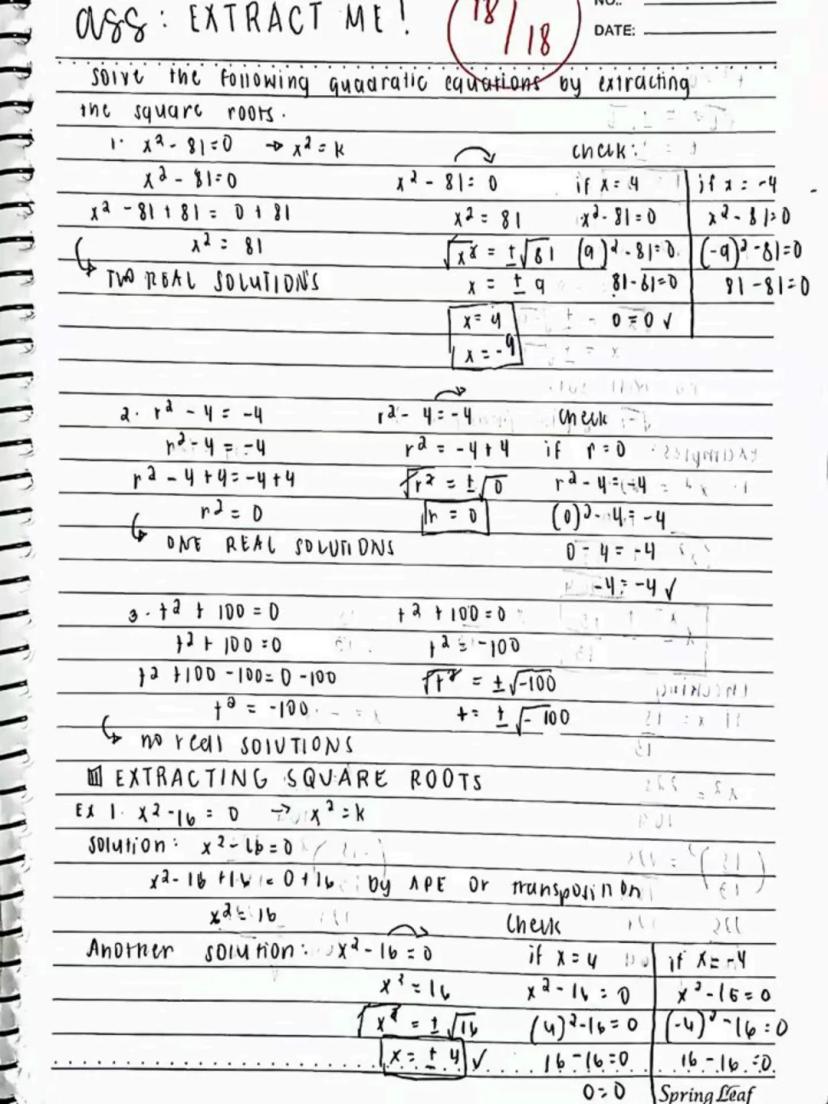 ass: EXTRACT ME!
18/18
NO.:
DATE:
solve the following quadratic equations by extracting
the square roots.
1. x² - 81=0 → x² = k
check:
x² - 81=0
x² - 81 + 81 = 0 + 81
x² = 81
TWO REAL SOLUTIONS
x² - 81 = 0
x² = 81
√x² = ±√81
x = ± 9
x = 9
x = -9
if x = 4
x² - 81 = 0
(9)² - 81 = 0
81 - 81 = 0
0 = 0 ✓
if x = -4
x² - 81 = 0
(-9)² - 81 = 0
81 - 81 = 0
2. r² - 4 = -4
r² - 4 = -4
r² - 4 + 4 = -4 + 4
r² = 0
ONE REAL SOLUTIONS
r² - 4 = -4
r² = -4 + 4
√r² = ±√0
r = 0
check
if r = 0
r² - 4 = -4
(0)² - 4 = -4
0 - 4 = -4
-4 = -4 ✓
3. t² + 100 = 0
t² + 100 = 0
t² + 100 - 100 = 0 - 100
t² = -100
no reell SOLUTIONS
t² + 100 = 0
t² = -100
√t² = ±√-100
t = ±√-100
EXTRACTING SQUARE ROOTS
EX 1. x² - 16 = 0 → x² = k
solution: x² - 16 = 0
x² - 16 + 16 = 0 + 16 by APE or transposition
x² = 16
Another solution: x² - 16 = 0
x² = 16
√x² = ±√16
x = ± 4 ✓
check
if x = 4
x² - 16 = 0
(4)² - 16 = 0
16 - 16 = 0
0 = 0
if x = -4
x² - 16 = 0
(-4)² - 16 = 0
16 - 16 = 0
Spring Leaf